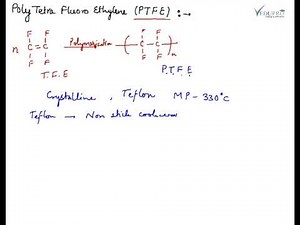 Poly Tetra Fluoro Ethylene (PTFE) :→
F F F F
n C = C Polymerization → ( C – C )n
F F F F
T.F.E P.T.F.E
Crystalline , Teflon MP - 330°C
Teflon → Non stick cookware